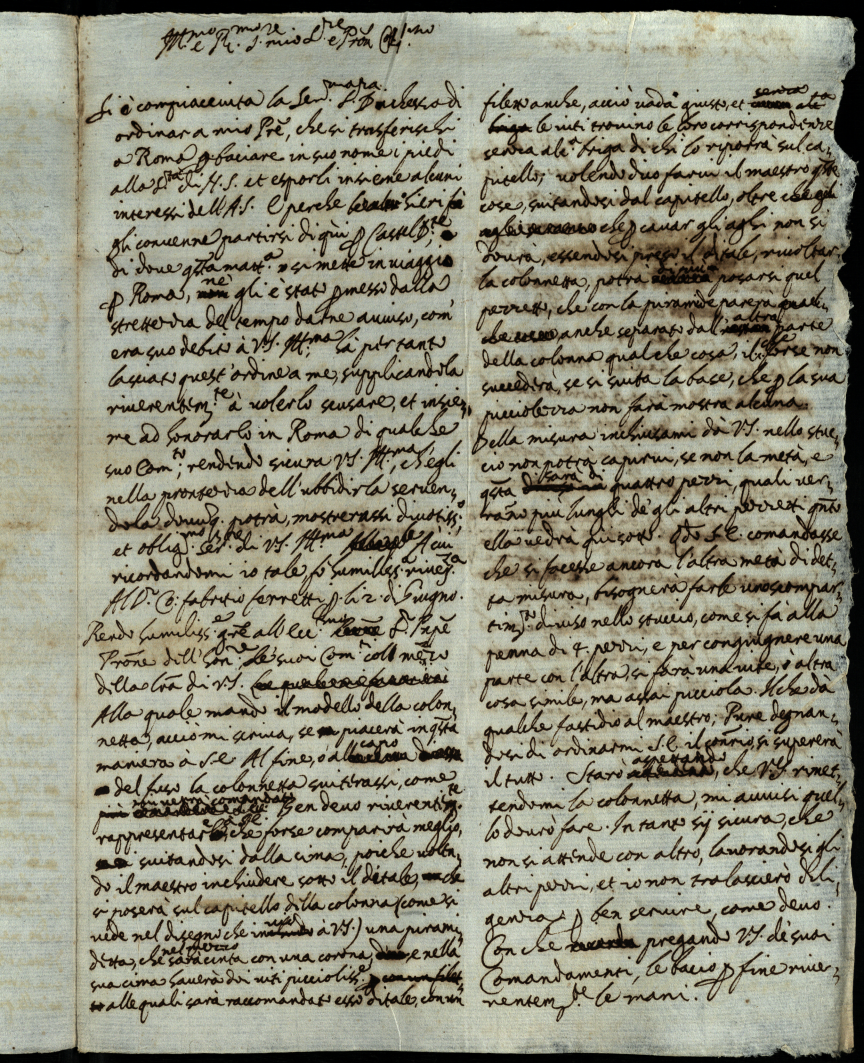 Ill.mo e R.mo S. mio S.re e Pron Col.mo
Si è compiacciuta la Ser.ma S. Duchessa di
ordinar a mio Prẽ, che si trasferischi
a Roma ꝑ baciare in suo nome i piedi
alla S.tà di N.S. et esporli insieme alcuni
interessi dell'A.S. E perche hieri
gli convenne partirsi di qui ꝑ Castel
di dove q.sta matt.a si mette in viaggio
ꝑ Roma, nè gli è stato ꝑmesso dalla
strettezza del tempo darne avviso, com'
era suo debito à V.S. Ill.ma hà per tanto
lasciato quest'ordine a me, supplicandola
riverentem.te à volerlo scusare, et insie-
me ad honorarlo in Roma di qualche
suo Com.to, rendendo sicura V.S. Ill.ma, ch'egli
nella prontezza dell'ubbidirla serven-
dola potrà, mostrerassi divotiss.o
et oblig.mo ser.re di V.S. Ill.ma A cui
ricordandomi io tale, fo humiliss.a river.za
Al D. Co: fabritio ferretti ꝑ li 2. di Giugno.
Rendo humiliss.e gr̃e all'Ecc.mo S. Prñpe
Prõne dell'hon.re de' suoi Com.ti coll mezzo
della lr̃a di V.S.
Alla quale mando il modello della colon-
netta, acciò mi scriva, se piacerà in q.sta
maniera à S.E. Al fine, ò al capo
del fuso la colonnetta svitterassi, come
ben devo riverentem.te
rappresentar che forse comparirà meglio,
svitandosi dalla cima, poiche volen-
do il maestro inchiudere sotto il ditale,
si poserà sul capitello della colonna (come si
vede nel disegno che à V.S.) una pirami-
detta, che nel mezzo sarà cinta con una corona, e nella
sua cima haverà dei viti picciolis.e
alle quali sarà raccomandato esso ditale, con un
filetto anche, acciò vada giusto, et senza
le viti trovino le loro corrispondenze
senza alc.a briga di chi lo riporrà sul ca-
pitello; volendo farvi il maestro q.ste
cose, svitandosi dal capitello, oltre
che ꝑ cavar gli aghi non si
dovrà, essendosi preso il ditale, rivoltar
la colonnetta, potrà posarsi quel
pezzetto, che con la piramide
anche separato dall' altra parte
della colonna qualche cosa, il che forse non
succederà, se si svita la base, che ꝑ la sua
picciolezza non farà mostra alcuna.
Della misura inchiusami da V.S. nello stuc-
cio non potrà capirvi, se non la metà, e
q.sta sarà di quattro pezzi, quali ver-
rano più lunghi de gli altri pezzetti q.nto
ella vedrà qui sotto. S.E. comandasse
che si facesse ancora l'altra metà di det-
ta misura, bisognerà farle uno scompar-
tim.to diviso nello stuccio, come si fà alla
penna di 4. pezzi, e per congiugnere una
parte con l'altra, si farà una vite, ò altra
cosa simile, ma assai picciola. Il che dà
qualche fastidio al maestro; Pure degnan-
dosi di ordinarmi S.E. il, si supererà
il tutto. Starò aspettando, che V.S. rimet-
tendomi la colonnetta, mi avvisi quel-
lo dovrò fare. In tanto sij sicura, che
non si attende con altro, lavorandosi gli
altri pezzi, et io non tralascierò dili-
genza ꝑ ben servire, come devo.
Con che pregando V.S. de' suoi
Comandamenti, le bacio ꝑ fine river-
rentem.te le mani.